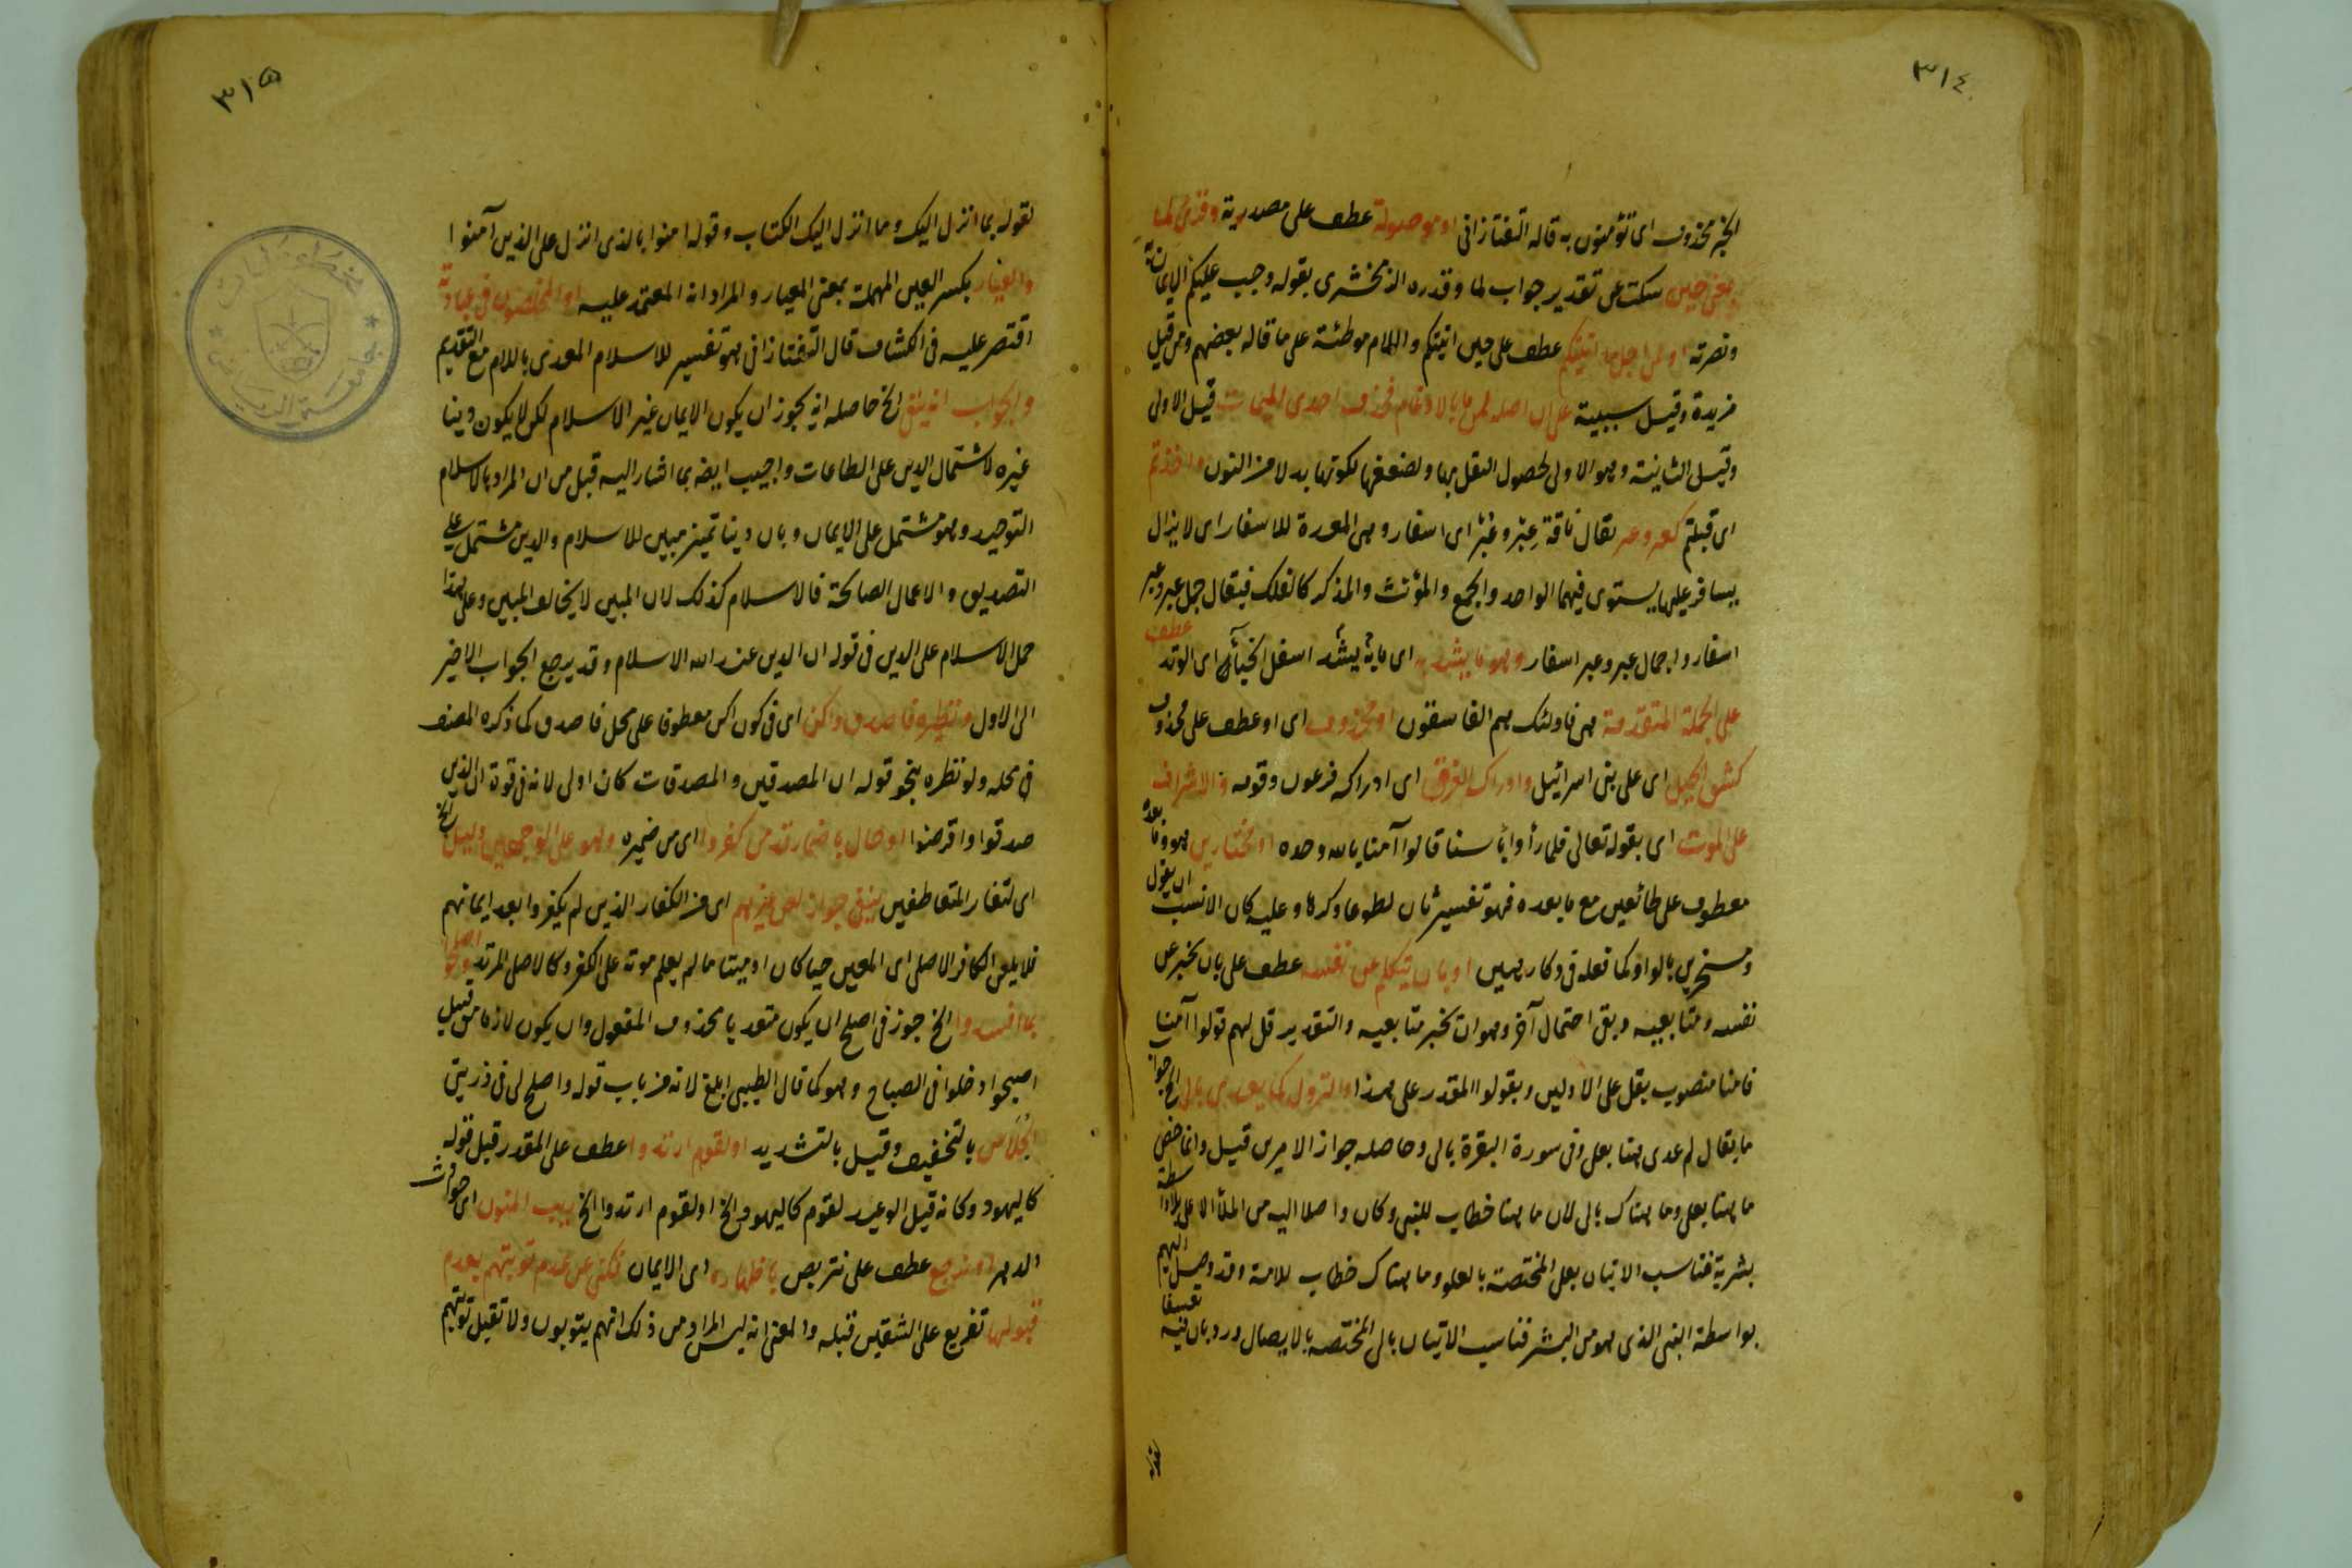 ٣١٤
الخبر محذوف اى تؤمنون به قاله التفتازانى او موصولة عطف على مصدرية وقرئ لما
بمعنى حين سكت عن تقدير جواب لما وقدره الزمخشرى بقوله وجب عليكم الايمان به
ونصرته او من اجل ما اتيتكم عطف على حين اتيتكم واللام موطئة على ما قاله بعضهم ومن قيل
مزيدة وقيل سببية على ان اصله لمن ما بالادغام فحذف احدى الميمات قيل الاولى
وقيل الثانية وهو الاولى لحصول الثقل بها ولضعفها لكونها بدلا من النون واخذتم
اى قبلتم كعبر وعبر يقال ناقة عبر وعبر اى اسفار وهى المعدة للاسفار اى لا يزال
يسافر عليها يستوى فيهما الواحد والجمع والمؤنث والمذكر كالفلك فيقال جمل عبر وعبر
اسفار واجمال عبر وعبر اسفار وهو ما يشد به اى ما به يشد اسفل الخباء اى الوتد عطف
على الجملة المتقدمة هى فاولئك هم الفاسقون او محذوف اى او عطف على محذوف
كنتق الجبل اى على بنى اسرائيل وادراك الغرق اى ادراكه فرعون وقومه والاشراف
على الموت اى بقوله تعالى فلما رأوا بأسنا قالوا آمنا بالله وحده او مختارين هو وما بعده
معطوف على طائعين مع ما بعده فهو تفسير ثان لطوعا وكرها وعليه كان الانسب ان يقول
ومسخرين بالواو كما فعله فى وكارهين او بان يتكلم عن نفسه عطف على بان يخبر عن
نفسه ومتابعيه وبقى احتمال آخر وهو ان يخبر متابعيه والتقدير قل لهم قولوا آمنا
فامنا منصوب بقل على الاولين وبقولوا المقدر على هذا والنزول كما يعدى بالى الخ جواب
ما يقال لم عدى هنا بعلى وفى سورة البقرة بالى وحاصله جواز الامرين قيل وانما خص
ما هنا بعلى وما هناك بالى لان ما هنا خطاب للنبى وكان واصلا اليه من الملأ الاعلى بلا واسطة
بشرية فناسب الاتيان بعلى المختصة بالعلو وما هناك خطاب للامة وقد وصل اليهم
بواسطة النبى الذى هو من البشر فناسب الاتيان بالى المختصة بالايصال ورد بان فيه تعسفا
٣١٥
لقوله بما انزل اليك وما انزل اليك الكتاب وقوله امنوا بالذى انزل على الذين آمنوا
والعيار بكسر العين المهملة بمعنى المعيار والمراد انه المعتمد عليه او المخلصون فى عبادته
اقتصر عليه فى الكشاف قال التفتازانى هو تفسير للاسلام المعدى باللام مع التقديم
والجواب انه ينفى الخ حاصله انه يجوز ان يكون الايمان غير الاسلام لكن لا يكون دينا
غيره لاشتمال الدين على الطاعات واجيب ايضه بما اشار اليه قبل من ان المراد بالاسلام
التوحيد وهو مشتمل على الايمان وبان دينا تميز مبين للاسلام والدين مشتمل على
التصديق والاعمال الصالحة فالاسلام كذلك لان المبين لا يخالف المبين وعلى هذا
حمل الاسلام على الدين فى قوله ان الدين عند الله الاسلام وقد يرجع الجواب الاخير
الى الاول ونظيره فاصدق واكن اى فى كون اكن معطوفا على محل فاصدق كما ذكره المصنف
فى محله ولو نظره بنحو قوله ان المصدقين والمصدقات كان اولى لانه فى قوة ان الذين
صدقوا واقرضوا او حال باضمار قد من كفروا اى من ضميره وهو على الوجهين دليل الخ
اى لتغاير المتعاطفين ينفى جواز لعن غيرهم اى من الكفار الذين لم يكفروا بعد ايمانهم
فلا يلعن الكافر الاصلى اى المعين حيا كان او ميتا ما لم يعلم موته على الكفر وكالاصلى المرتد واصلحوا
ما افسدوا الخ جوز فى اصلح ان يكون متعديا محذوف المفعول وان يكون لازما من قبيل
اصبحوا دخلوا فى الصباح وهو كما قال الطيبى ابلغ لانه من باب قوله واصلح لى فى ذريتى
الجلاس بالتخفيف وقيل بالتشديد او لقوم ارتدوا عطف على المقدر قبل قوله
كاليهود وكانه قيل الوعيد لقوم كاليهود الخ او لقوم ارتدوا الخ ريب المنون اى حوادث
الدهر او نرجع عطف على نتربص باظهاره اى الايمان فكنى عن عدم توبتهم بعدم
قبولها تفريع على الشقين قبله والمعنى انه ليس المراد من ذلك انهم يتوبون ولا تقبل توبتهم
جامعة الرياض